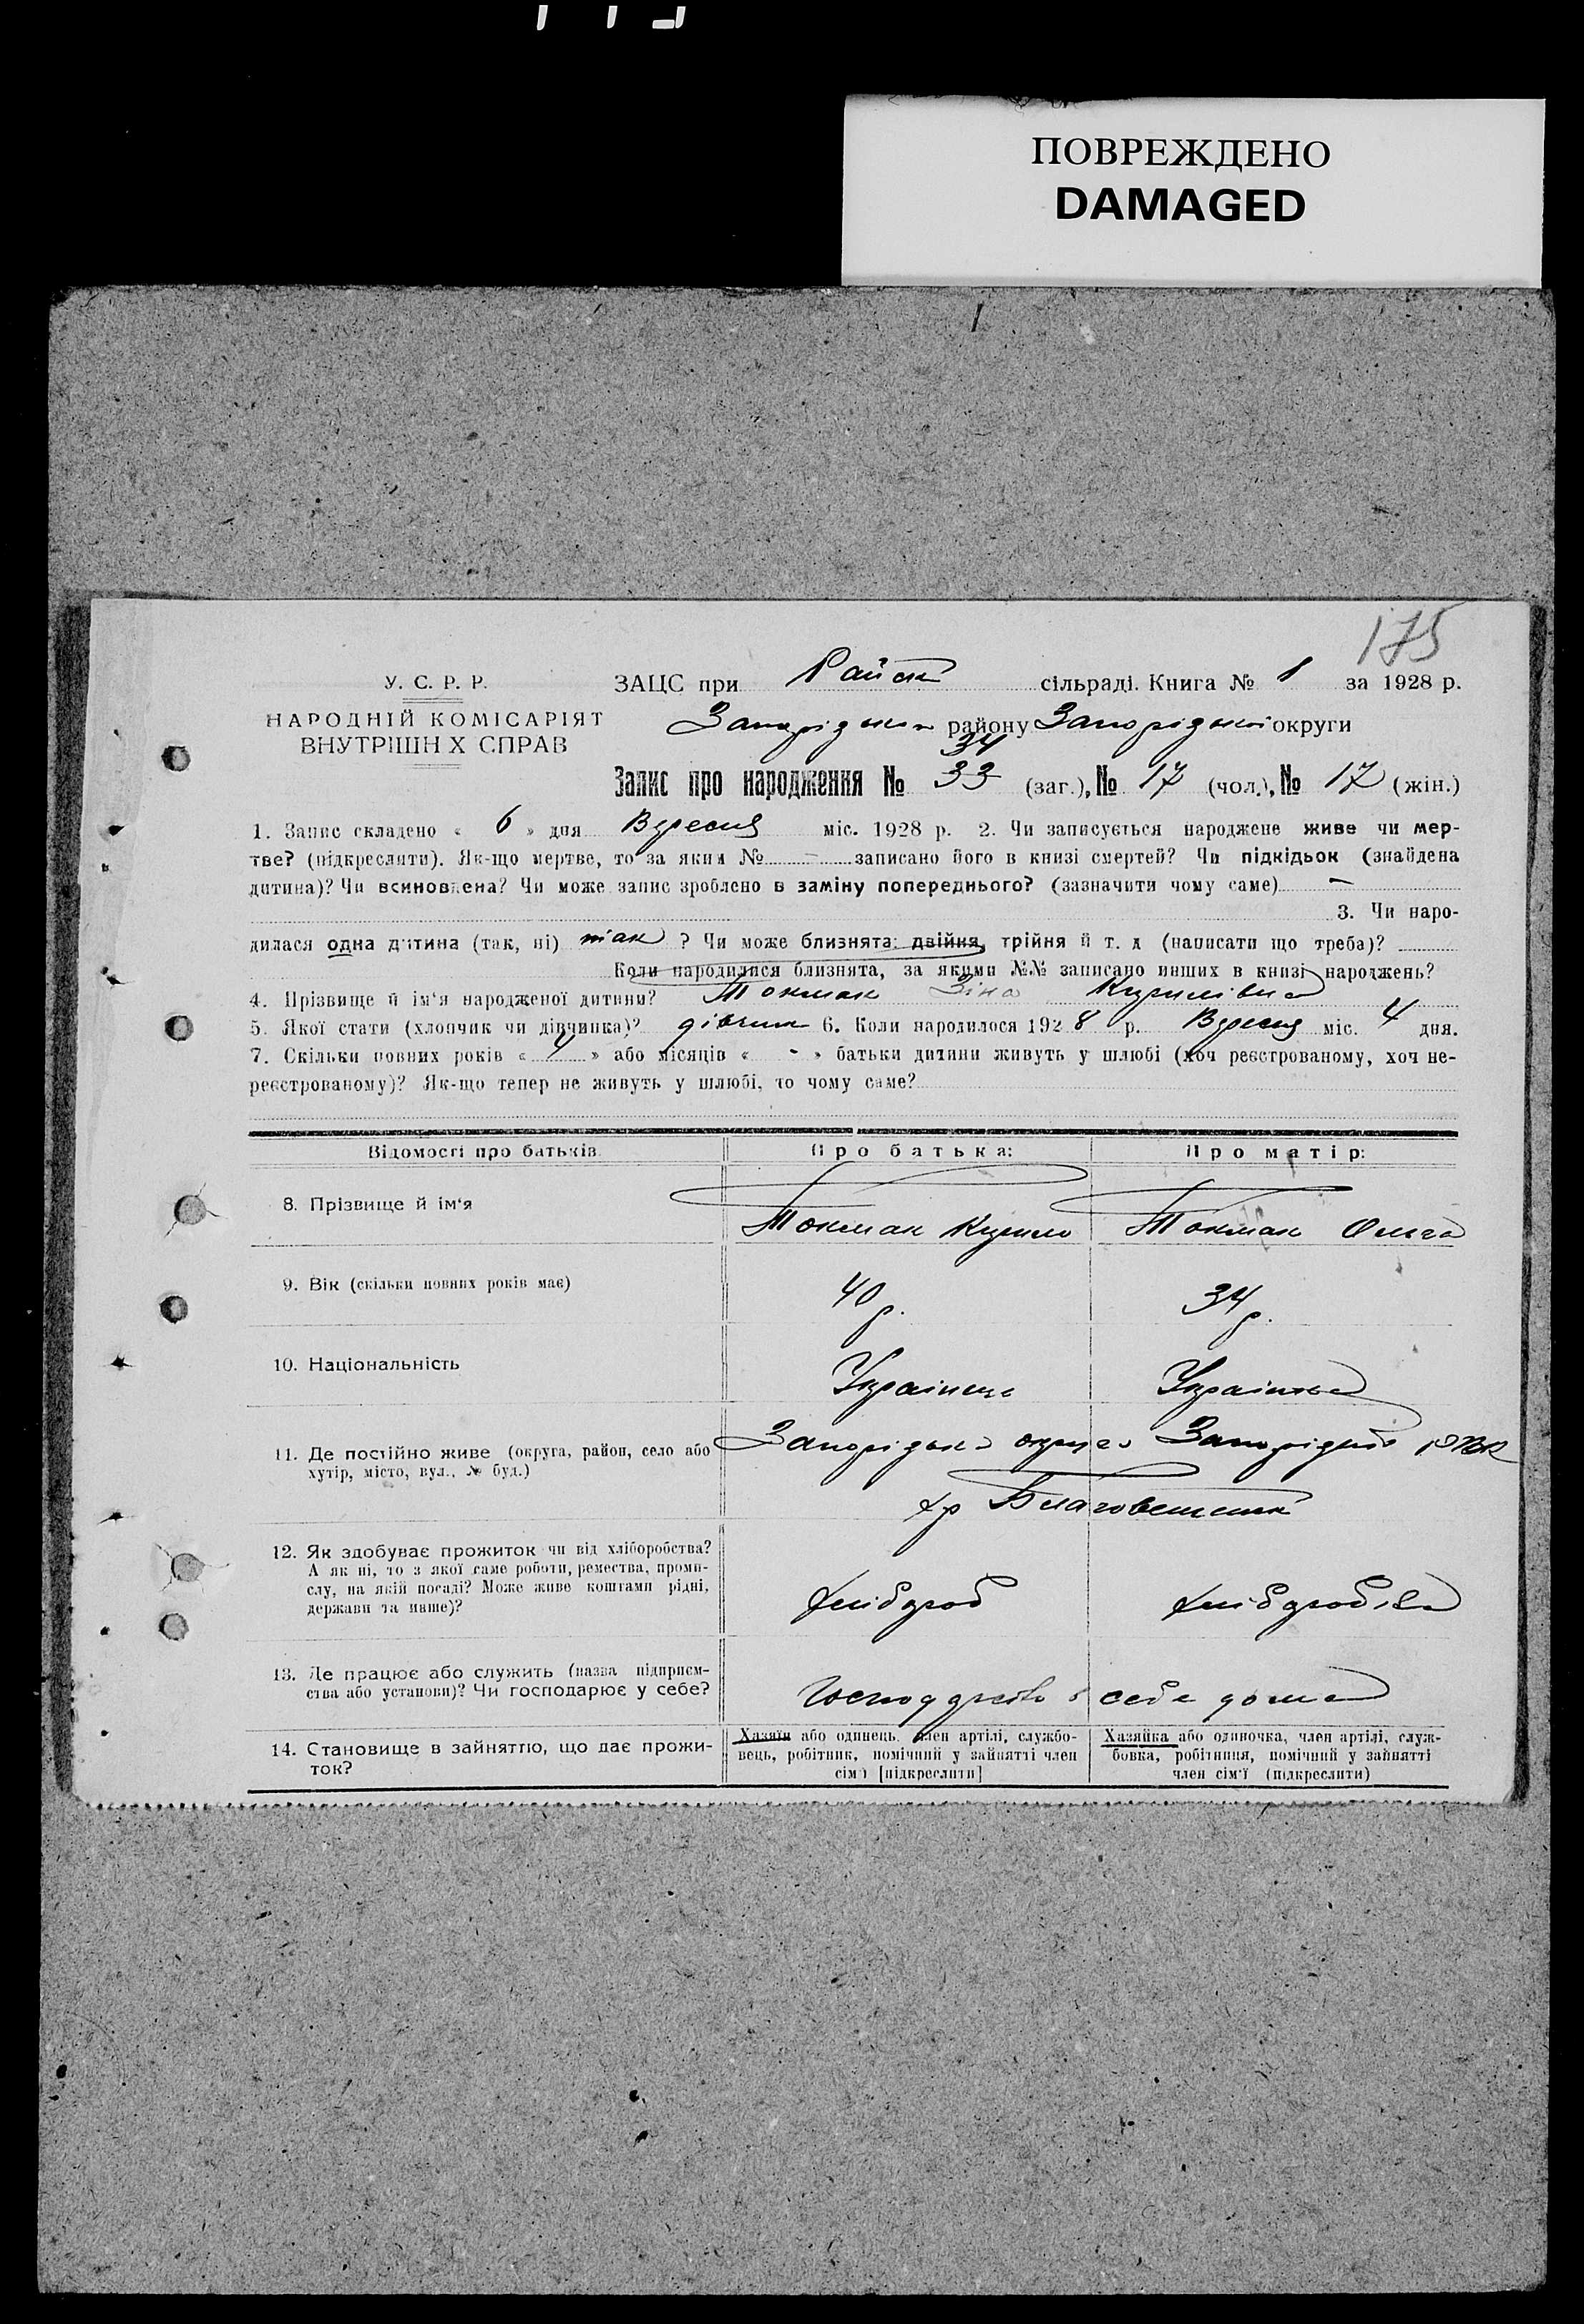 ПОВРЕЖДЕНО
DAMAGED
1
175
У. С. Р. Р.
НАРОДНІЙ КОМІСАРІЯТ
ВНУТРІШН Х СПРАВ
ЗАЦС при Райськ сільраді. Книга № 1 за 1928 р.
Запорізьк району Запорізької округи
34
Запис про народження № 33 (заг.), № 17 (чол.), № 17 (жін.)
1. Запис складено « 6 » дня Вересня міс. 1928 р. 2. Чи записується народжене живе чи мер-
тве? (підкреслити). Як-що мертве, то за яким № - записано його в книзі смертей? Чи підкідьок (знайдена
дитина)? Чи всиновлена? Чи може запис зроблено в заміну попереднього? (зазначити чому саме) -
3. Чи наро-
дилася одна дитина (так, ні) так ? Чи може близнята: двійня, трійня й т. д (написати що треба)?
Коли народилися близнята, за якими №№ записано инших в книзі народжень?
4. Прізвище й ім'я народженої дитини? Токмак Зіна Кирилівна
5. Якої стати (хлопчик чи дівчинка)? дівчин 6. Коли народилося 1928 р. Вересня міс. 4 дня.
7. Скільки повних років « 4 » або місяців « - » батьки дитини живуть у шлюбі (хоч реєстрованому, хоч не-
реєстрованому)? Як-що тепер не живуть у шлюбі, то чому саме?
Відомості про батьків
Про батька:
Про матір:
8. Прізвище й ім'я
Токмак Кирило
Токмак Ольга
9. Вік (скільки повних років має)
40 р.
34 р.
10. Національність
Українець
Українка
11. Де постійно живе (округа, район, село або
хутір, місто, вул., № буд.)
Запорізька округа Запорізьк
хр Благовещенск
12. Як здобуває прожиток чи від хліборобства?
А як ні, то з якої саме роботи, ремества, проми-
слу, на якій посаді? Може живе коштами рідні,
держави та инше)?
хлібороб
хліборобка
13. Де працює або служить (назва підприєм-
ства або установи)? Чи господарює у себе?
у себе дома
14. Становище в зайняттю, що дає прожи-
ток?
Хазяїн або одинець, член артілі, службо-
вець, робітник, помічний у зайнятті член
сім'ї [підкреслити]
Хазяйка або одиночка, член артілі, служ-
бовка, робітниця, помічний у зайнятті
член сім'ї (підкреслити)